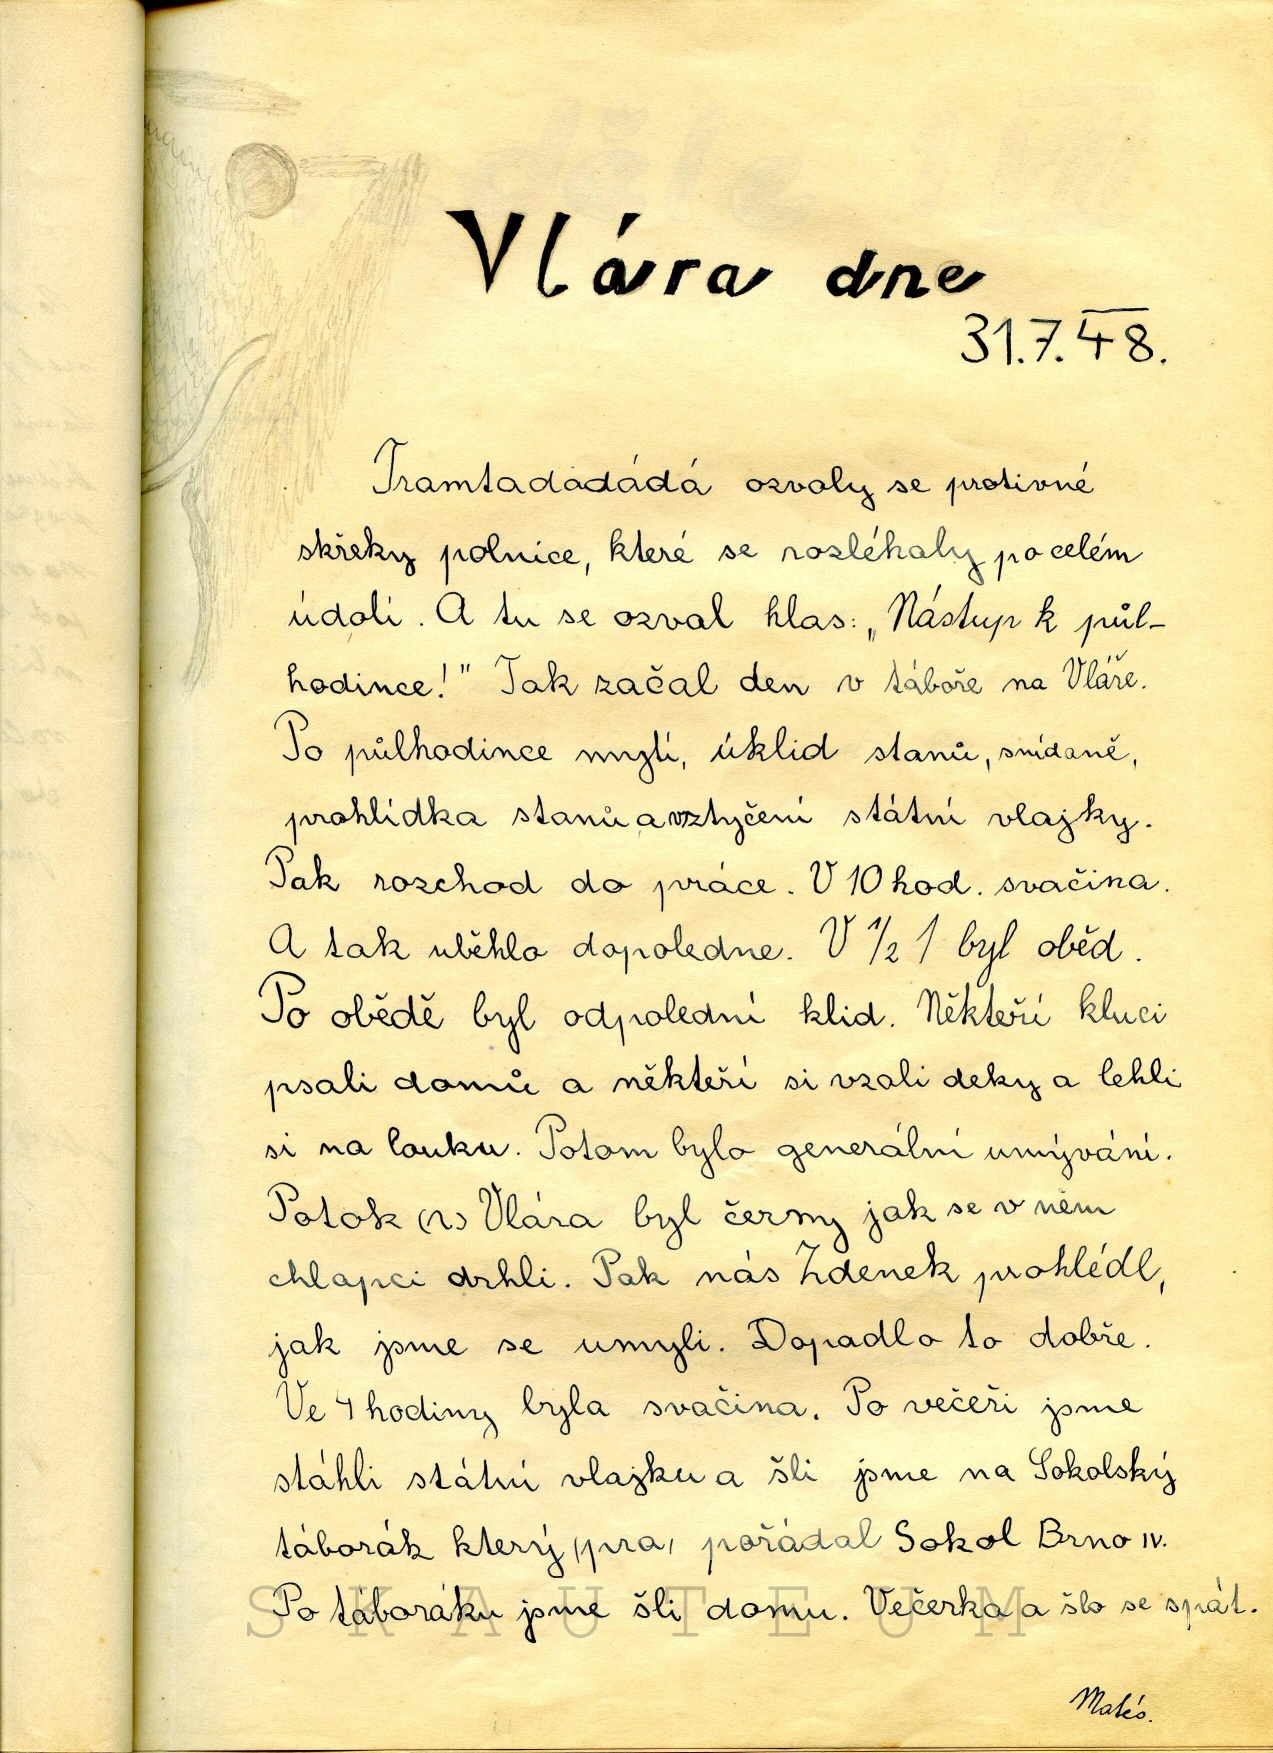 Vlára dne
31.7.48.
Tramtadadádá ozvaly se protivné
skřeky polnice, které se rozléhaly po celém
údolí. A tu se ozval hlas: „Nástup k půl-
hodince!" Tak začal den v táboře na Vláře.
Po půlhodince mytí, úklid stanů, snídaně,
prohlídka stanů a vztyčení státní vlajky.
Pak rozchod do práce. V 10 hod. svačina.
A tak uběhlo dopoledne. V 1/2 1 byl oběd.
Po obědě byl odpolední klid. Někteří kluci
psali domů a někteří si vzali deky a lehli
si na louku. Potom bylo generální umývání.
Potok (r) Vlára byl černý jak se v něm
chlapci drhli. Pak nás Zdenek prohlédl,
jak jsme se umyli. Dopadlo to dobře.
Ve 4 hodiny byla svačina. Po večeři jsme
stáhli státní vlajku a šli jsme na Sokolský
táborák který (pra) pořádal Sokol Brno IV.
Po táboráku jsme šli domu. Večerka a šlo se spát.
SKAUTEUM